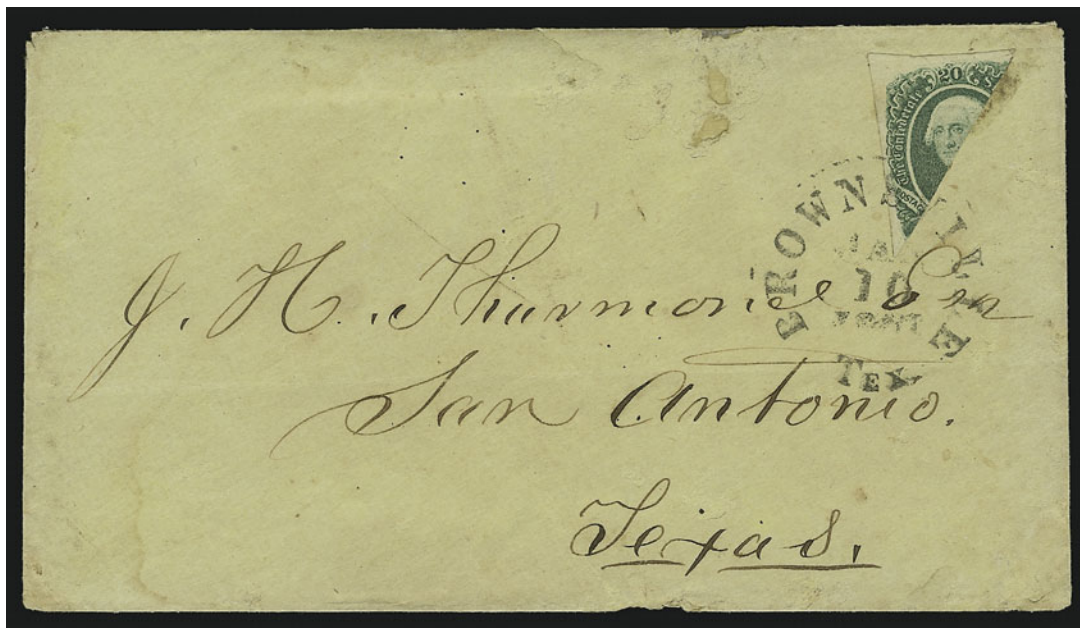 20
The Confederate
BROWNSVILLE
JAN
10
TEX.
J. H. Thurmond Esq
San Antonio.
Texas.